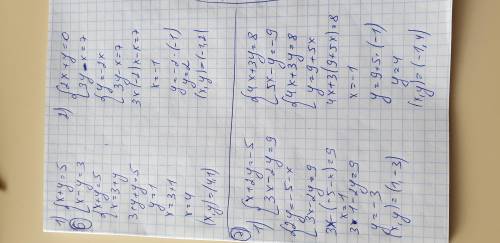 6
1) { x+y=5
{ x-y=3
{ x+y=5
{ x=3+y
3+y+y=5
y=1
x=3+1
x=4
(x,y)=(4,1)
2) { 2x+y=0
{ 3y-x=7
{ y=-2x
{ 3y-x=7
3x(-2)x-x=7
x=-1
y=-2·(-1)
y=2
(x,y)=(-1,2)
7
1) { x+2y=-5
{ 3x-2y=9
{ 2y=-5-x
{ 3x-2y=9
3x-(-5-x)=9
x=1
3·1-2y=9
y=-3
(x,y)=(1,-3)
2) { 4x+3y=8
{ 5x-y=-9
{ 4x+3y=8
{ y=9+5x
4x+3(9+5x)=8
x=-1
y=9+5·(-1)
y=4
(x,y)=(-1,4)